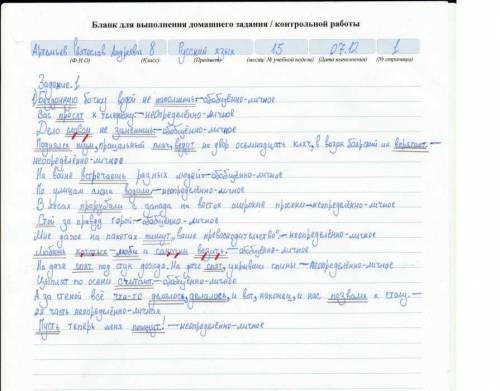 Бланк для выполнения домашнего задания / контрольной работы
Артемьев Святослав Андреевич 8 Русский язык 15 07.12 1
(Ф.И.О) (Класс) (Предмет) (месяц/ № учебной недели) (Дата выполнения) (№ страницы)
Задание.1
Бездонную бочку водой не наполнишь-обобщённо-личное
Вас просят к телефону-неопределённо-личное
Дело словом не заменишь-обобщённо-личное
Поднялся шум, прощальный плач, ведут на двор осьмнадцать кляч, в возок боярский их впрягают-
неопределённо-личное
На войне встречаешь разных людей-обобщённо-личное
По улицам слона водили-неопределённо-личное
В лесах прорубали с запада на восток широкие просеки-неопределённо-личное
Стой за правду горой-обобщённо-личное
Мне даже на пакетах пишут „ваше превосходительство"-неопределённо-личное
Любишь кататься-люби и саночки возить-обобщённо-личное
На даче спят под стук дождя. На даче спят, укрывши спины-неопределённо-личное
Цыплят по осени считают-обобщённо-личное
А за стеной всё что-то делалось, делалось, и вот, наконец, и нас позвали к столу.-
2я часть неопределённо-личная
Пусть теперь меня поищут!-неопределённо-личное